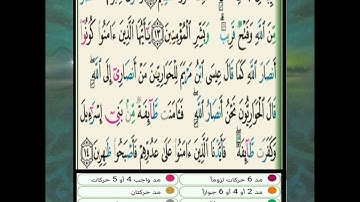 مِّنَ ٱللَّهِ وَفَتْحٌ قَرِيبٌ ۗ وَبَشِّرِ ٱلْمُؤْمِنِينَ ﴿١٣﴾ يَٰٓأَيُّهَا ٱلَّذِينَ ءَامَنُوا۟ كُونُوٓا۟
أَنصَارَ ٱللَّهِ كَمَا قَالَ عِيسَى ٱبْنُ مَرْيَمَ لِلْحَوَارِيِّـۧنَ مَنْ أَنصَارِىٓ إِلَى ٱللَّهِ ۖ
قَالَ ٱلْحَوَارِيُّونَ نَحْنُ أَنصَارُ ٱللَّهِ ۖ فَـَٔامَنَت طَّآئِفَةٌ مِّنۢ بَنِىٓ إِسْرَٰٓءِيلَ
وَكَفَرَت طَّآئِفَةٌ ۖ فَأَيَّدْنَا ٱلَّذِينَ ءَامَنُوا۟ عَلَىٰ عَدُوِّهِمْ فَأَصْبَحُوا۟ ظَٰهِرِينَ ﴿١٤﴾
مد 6 حركات لزوماً
مد واجب 4 أو 5 حركات
مد 2 أو 4 أو 6 جوازاً
مد حركتان